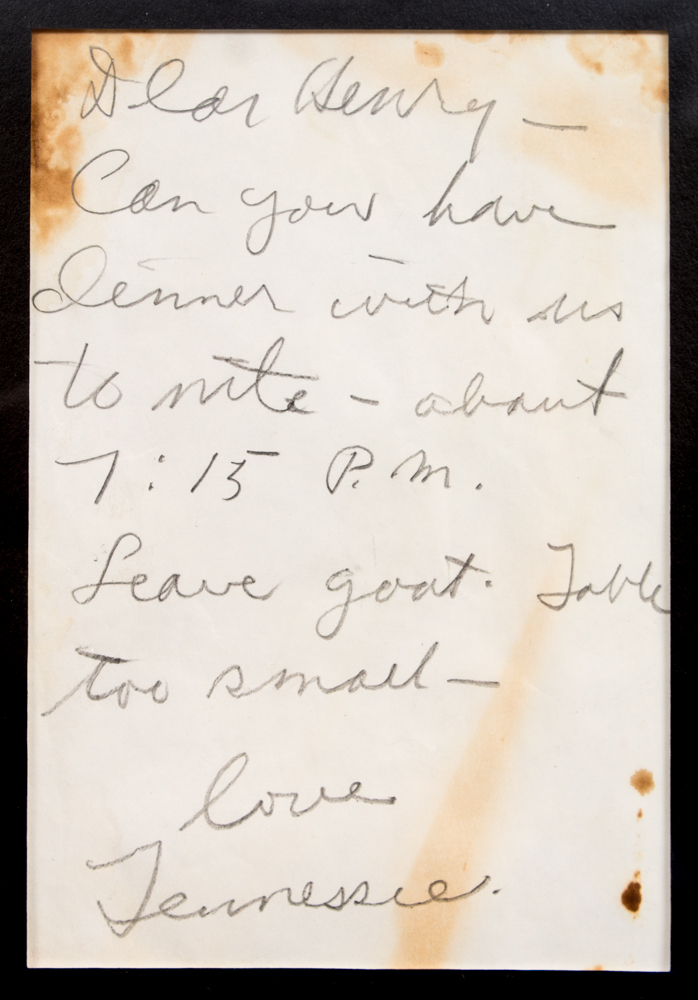 Dear Henry —
Can you have
dinner with us
to nite – about
7:15 P.M.
Leave goat. Table
too small —
love
Tennessee.